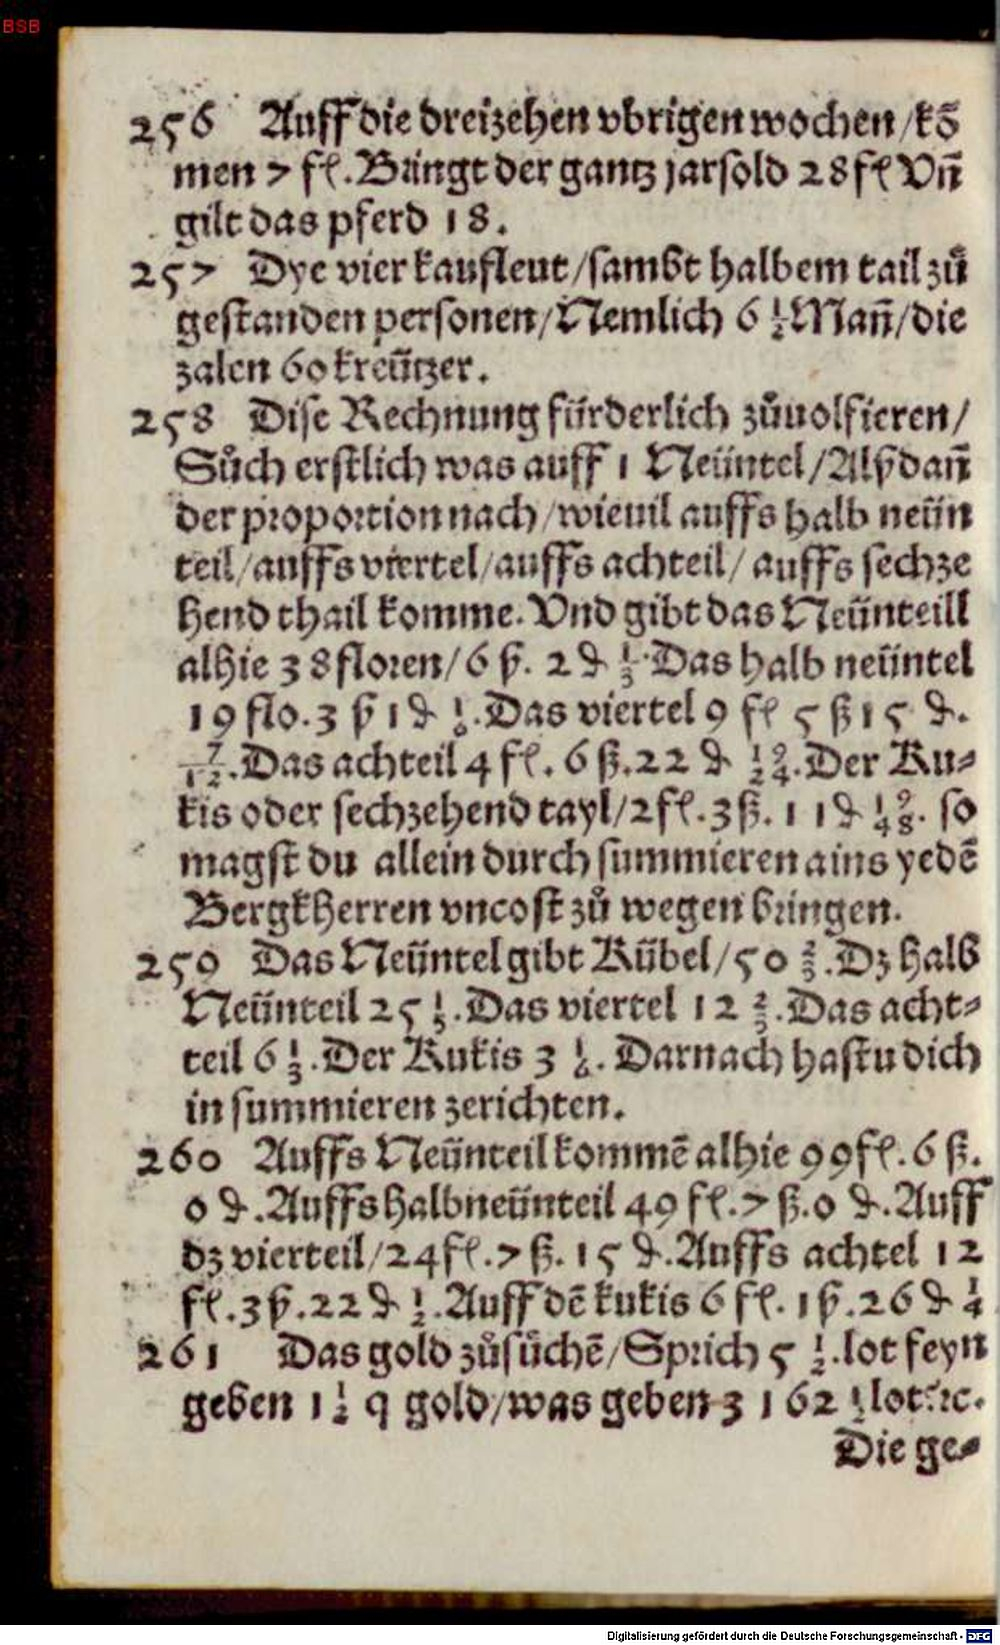 BSB
256 Auff die dreizehen vbrigen wochen/kõ
men 7 fl. Bringt der gantz jarsold 28 fl Vñ
gilt das pferd 18.
257 Dye vier kaufleut/sambt halbem tail zů
gestanden personen/Nemlich 6 1/2 Mañ/die
zalen 60 kreützer.
258 Dise Rechnung fürderlich zůuolfieren/
Sůch erstlich was auff 1 Neüntel/Alßdañ
der proportion nach/wieuil auffs halb neün
teil/auffs viertel/auffs achteil/auffs sechze
hend thail komme. Vnd gibt das Neünteill
alhie 38 floren/6 ß. 2 ₰ 1/3. Das halb neüntel
19 flo. 3 ß 1 ₰ 1/6. Das viertel 9 fl 5 ß 15 ₰.
7/12. Das achteil 4 fl. 6 ß. 22 ₰ 19/24. Der Ku⸗
kis oder sechzehend tayl/2 fl. 3 ß. 11 ₰ 19/48. so
magst du allein durch summieren ains yedẽ
Bergkherren vncost zů wegen bringen.
259 Das Neüntel gibt Kübel/50 2/3. Dz halb
Neünteil 25 1/3. Das viertel 12 2/3. Das acht⸗
teil 6 1/3. Der Kukis 3 1/6. Darnach hastu dich
in summieren zerichten.
260 Auffs Neünteil kommẽ alhie 99 fl. 6 ß.
0 ₰. Auffs halbneünteil 49 fl. 7 ß. 0 ₰. Auff
dz vierteil/24 fl. 7 ß. 15 ₰. Auffs achtel 12
fl. 3 ß. 22 ₰ 1/2. Auff dẽ kukis 6 fl. 1 ß. 26 ₰ 1/4
261 Das gold zůsůchẽ/Sprich 5 1/2. lot feyn
geben 1 1/2 q gold/was geben 3162 1/2 lot ꝛc.
Die ge⸗
Digitalisierung gefördert durch die Deutsche Forschungsgemeinschaft - DFG